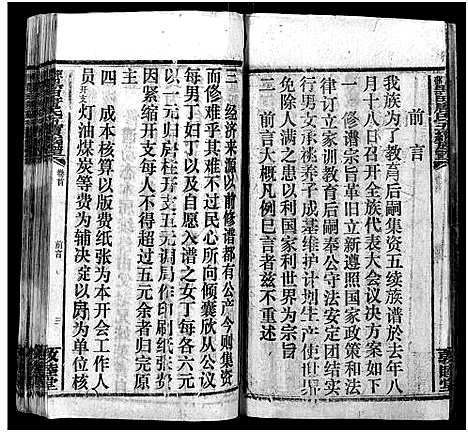 前言
我族为了教育后嗣集资五续族谱於去年八
月十八召开全族代表大会议决方案如下
一 修谱宗旨革旧立新遵照国家政策和法
律订立家训教育后嗣奉公守法安定团结实
行男女承祧养子成基维护计划生产使世界
免除人满之忧以利国家利世界为宗旨
二 前言大概凡例已言者兹不重述
三 经济来源以前修谱都有公产今则集资
而修难乎其难不过民心所向倾囊欣从公议
每男丁妇丁以及自愿入谱之女丁每各六元
以一元归房柱开支五元调局作印刷纸张费
主因紧缩开支每人不得超过五元余者归完原
四 成本核算以版费纸张为本开会工作人
员开支灯油煤炭等费为辅决定以房为单位核
卷首
前言
三
敦睦堂